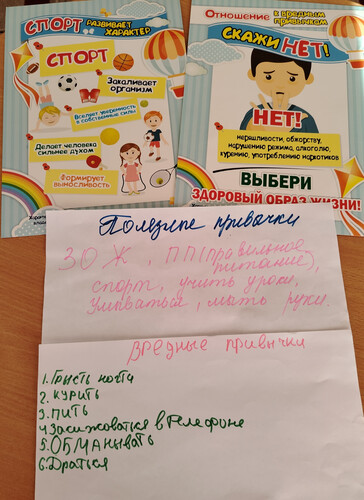 СПОРТ РАЗВИВАЕТ
ХАРАКТЕР
СПОРТ
Закаливает
организм
Вселяет уверенность
в собственные силы
Делает человека
сильнее духом
Формирует
выносливость
Отношение к вредным
привычкам
СКАЖИ НЕТ!
НЕТ!
неряшливости, обжорству,
нарушению режима, алкоголю,
курению, употреблению наркотиков
ВЫБЕРИ
ЗДОРОВЫЙ ОБРАЗ ЖИЗНИ!
Полезные привычки
ЗОЖ, ПП(правильное
питание),
спорт, учить уроки,
умываться, мыть руки.
Вредные привычки
1. Грысть ногти
2. Курить
3. Пить
4. Засиживаться в телефоне
5. Обманывать
6. Драться